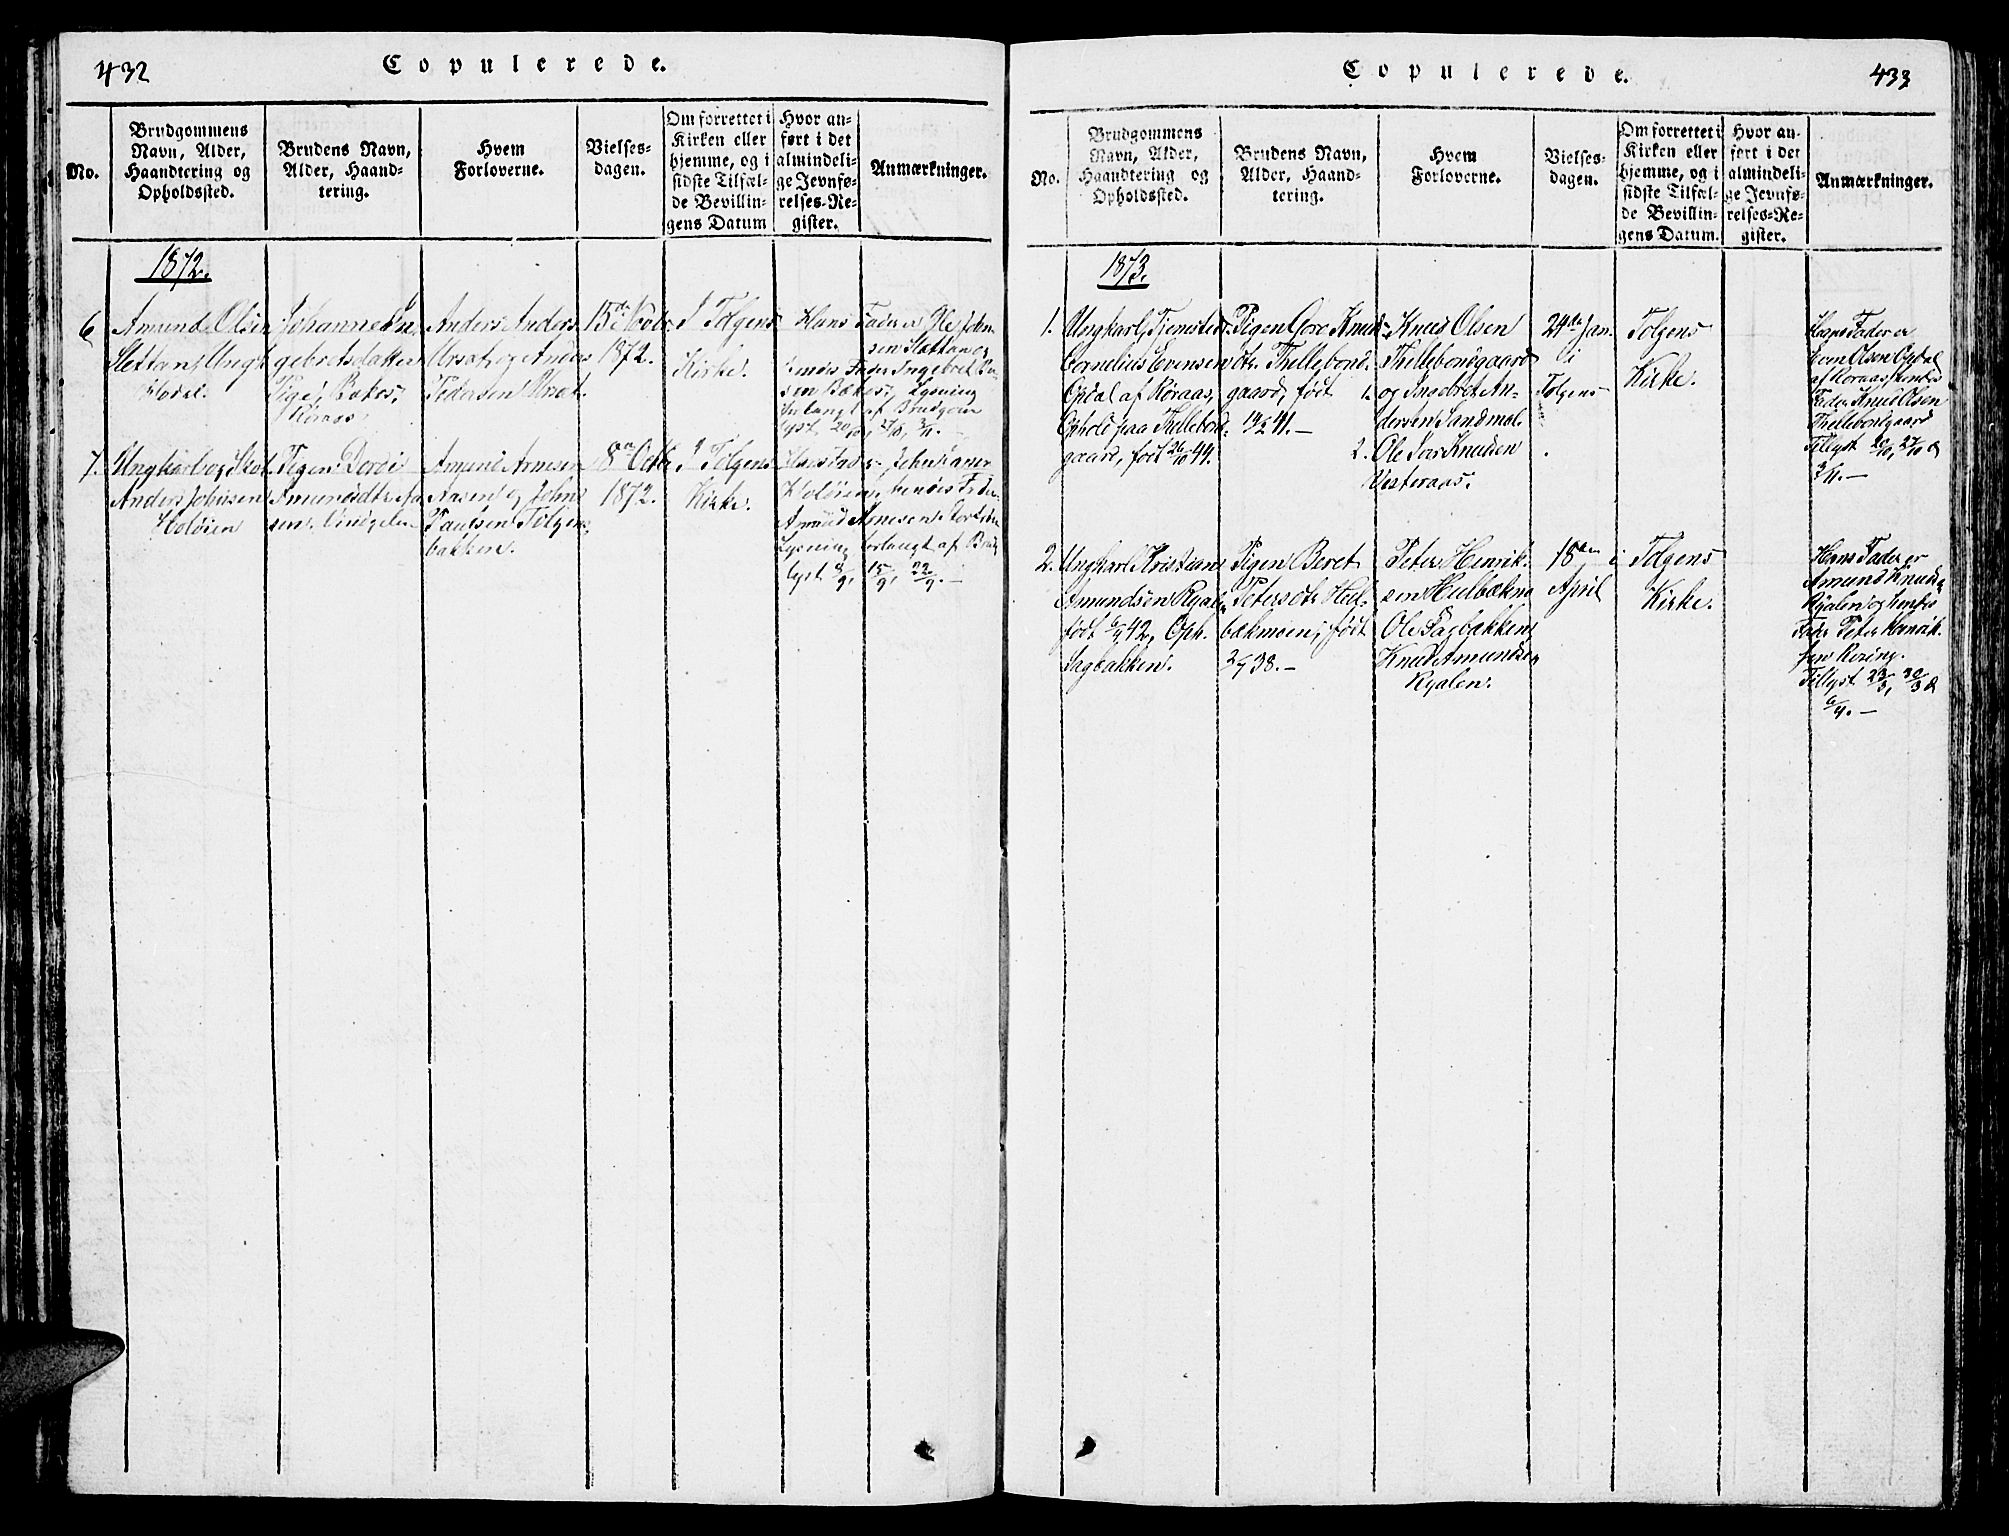 432
Copulerede.
No.
Brudgommens
Navn, Alder,
Haandtering og
Opholdssted.
Brudens Navn,
Alder, Haand-
tering.
Hvem
Forloverne.
Vielses-
dagen.
Om forrettet i
Kirken eller
hjemme, og i
sidste Tilfæl-
de Bevillin-
gens Datum
Hvor an-
ført i det
almindeli-
ge Jevnfø-
relses-Re-
gister.
Anmærkninger.
1872.
6
Amund Olsen
Slettan, Ungk
Johanne In
gebretsdatter
Pige, Bakos,
Röraas
Anders Anders
og Anders
Pedersen
15de Novbr
1872.
I Tolgens
Kirke.
Hans Fader er Ole John
sen Slettan og
hendes Fader Ingebret
Lysning
forlangt af Brudgom
lyst 20/10, 27/10, 3/11.
7.
Ungkarl og
Anders Johnsen
Holöien
Pigen Dordi
Amundsdtr Aa
sen
Amund Arnesen
Aasen og John
Paulsen Tolgens
bakken.
8de Octbr
1872.
I Tolgens
Kirke.
Hans Fader John
Holöien, hendes Fader
Amund Arnesen
Lysning forlangt af Brud
lyst 8/9, 15/9, 22/9.
433
Copulerede.
No.
Brudgommens
Navn, Alder,
Haandtering og
Opholdssted.
Brudens Navn,
Alder, Haand-
tering.
Hvem
Forloverne.
Vielses-
dagen.
Om forrettet i
Kirken eller
hjemme, og i
sidste Tilfæl-
de Bevillin-
gens Datum.
Hvor an-
ført i det
almindeli-
ge Jevnfø-
relses-Re-
gister.
Anmærkninger.
1873.
1.
Ungkarl, Tjenstedr.
Cornelius Evensen
Opdal af Röraas,
Ophold paa Thellebond-
gaard, födt 26/10 44.
Pigen Goro Knuds-
dtr. Thellebond-
gaard, födt
41.
Knud Olsen
Thellebondgaard
1. og Ingebret An-
dersen Sandmal.
2. Ole Knudsen
Vesteraas.
24de Jan.
i
Tolgens
Tolgens
Kirke.
Hans Fader er
Even Olsen Opdal
af Röraas, hendes
Fader Knud Olsen
Thellebondgaard
Tillyst 20/10, 27/10 &
3/11.
2.
Ungkarl Kristian
Amundsen Ryalen
födt 6/4 42, Oph.
Sagbakken.
Pigen Beret
Petersdtr Hul-
bækmoen, födt
38.
Peter Henrik-
sen Hulbækmo
Ole Sagbakken
Knud Amundsen
Ryalen.
18den
April
i Tolgens
Kirke.
Hans Fader er
Amund Knuds.
Ryalen og hendes
Fader Peter Henrik-
sen
Tillyst 23/3, 30/3 &
6/4.